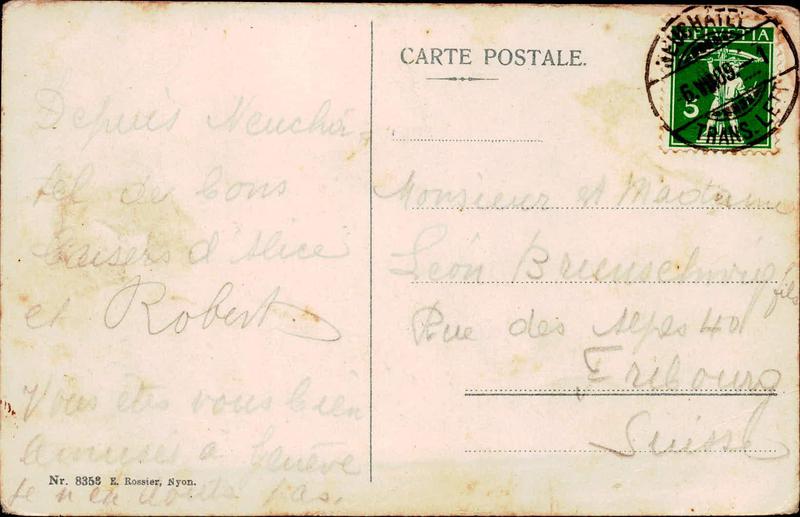 CARTE POSTALE.
HELVETIA
5
NEUCHÂTEL
6.VIII.09.
1
TRANS. LETT.
Depuis Neuchâ-
tel de bons
baisers d'Alice
et Robert
Vous êtes vous bien
amusés à Genève
je n'en doute pas.
Monsieur et Madame
Léon Brunschwig
fils
Rue des Alpes 40
Fribourg
Suisse
Nr. 8353 E. Rossier, Nyon.